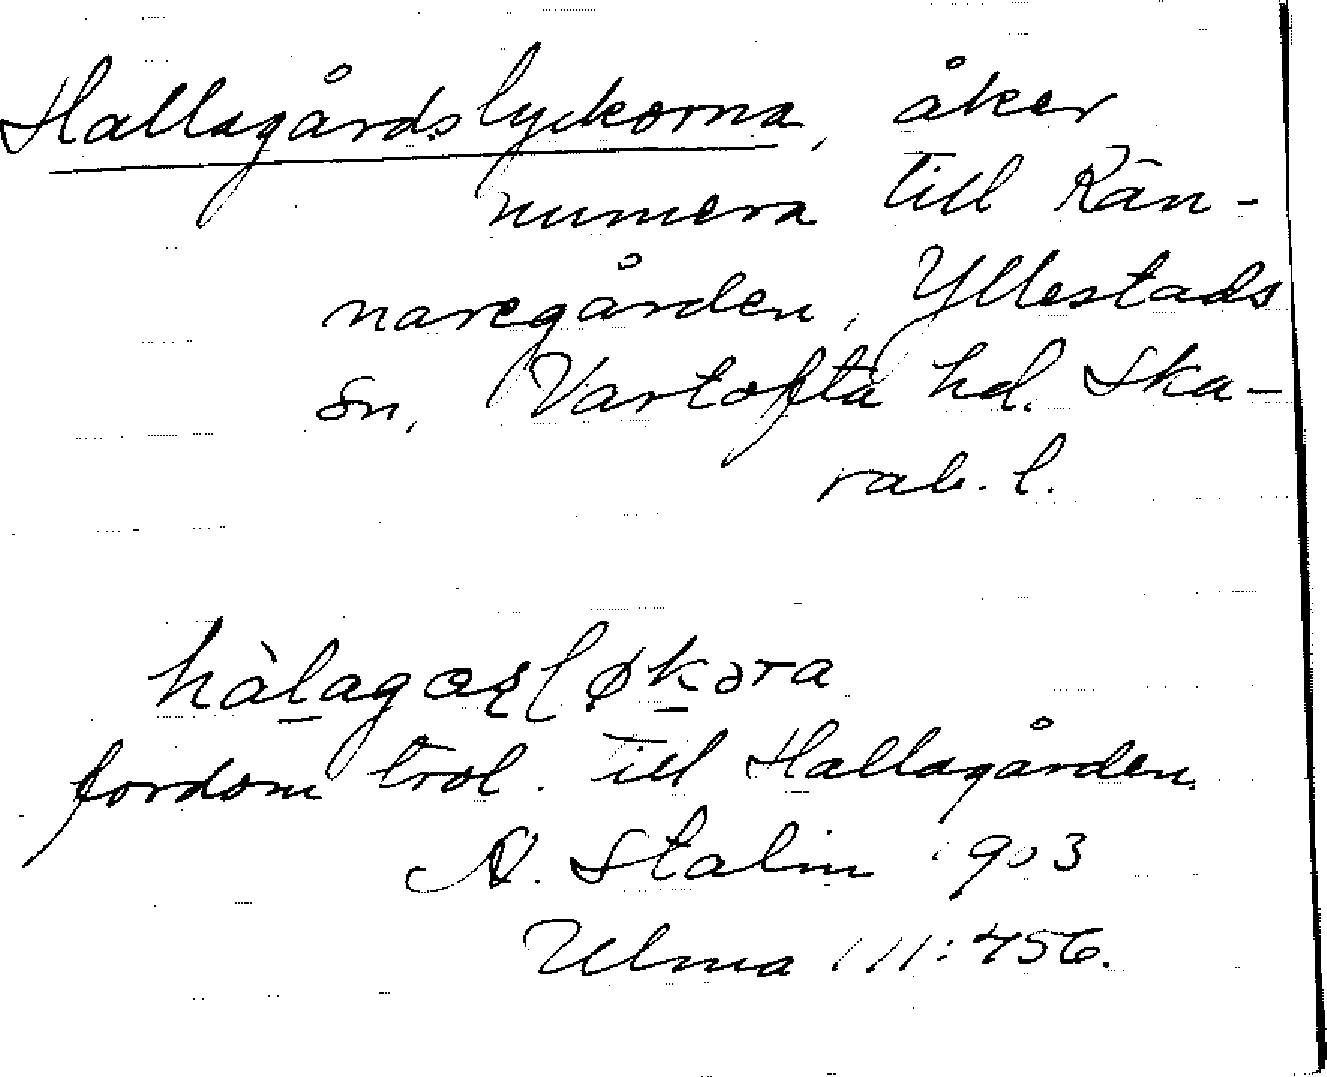 Hallagårdslyckorna, åker
numera till Rän-
naregården, Yllestads
sn, Vartofta hd. Ska-
rab. l.
hàlagɑʂløkəra
fordom trol. till Hallagården.
A. Stalin 1903
Ulma 111:456.